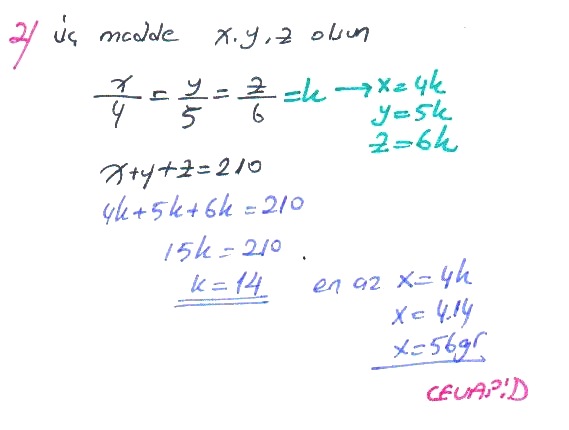 2/ üç madde x.y,z olsun
x/4 = y/5 = z/6 = k → x=4k
y=5k
z=6k
x+y+z=210
4k+5k+6k=210
15k=210
k=14
en az x=4k
x=4.14
x=56gr
CEVAP:D